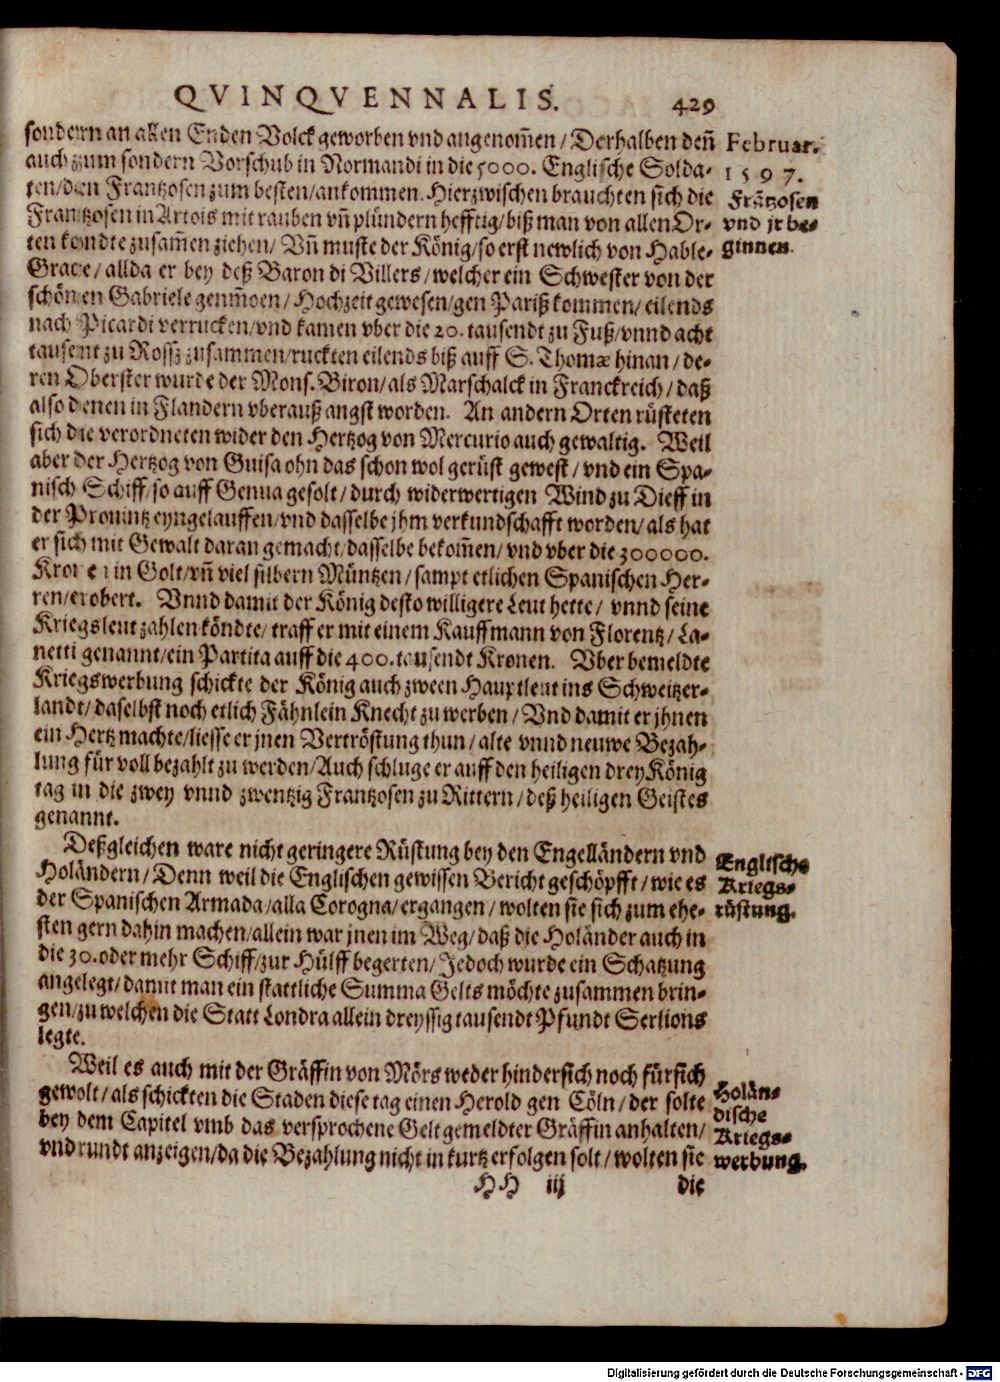 QVINQVENNALIS. 429
sondern an allen Enden Volck geworben vnd angenom̃en / Derhalben den̄
auch zum sondern Vorschub in Normandi in die 5000. Englische Solda-
ten/den Frantzosen zum besten/ankommen. Hierzwischen brauchten sich die
Frantzosen in Artois mit rauben vñ plündern hefftig/biß man von allen Or-
ten kondte zusam̃en ziehen/ Vñ muste der König/so erst newlich von Hable-
Grace/allda er bey deß Baron di Villers/welcher ein Schwester von der
schönen Gabriele genm̃oen/ Hochzeit gewesen/gen Pariß kommen/ eilends
nach Picardi verrucken/vnd kamen vber die 20. tausendt zu Fuß/vnnd acht
tausent zu Rossz zusammen/ruckten eilends biß auff S. Thomæ hinan / de-
ren Oberster wurde der Mons. Biron/als Marschalck in Franckreich/ daß
also denen in Flandern vberauß angst worden. An andern Orten rüsteten
sich die verordneten wider den Hertzog von Mercurio auch gewaltig. Weil
aber der Hertzog von Guisa ohn das schon wol gerüst gewest / vnd ein Spa-
nisch Schiff/so auff Genua gesolt/ durch widerwertigen Wind zu Dieff in
der Prouintz eyngelauffen/vnd dasselbe jhm verkundschafft worden/als hat
er sich mit Gewalt daran gemacht/dasselbe bekom̃en/ vnd vber die 300000.
Kronen in Golt/vñ viel silbern Müntzen / sampt etlichen Spanischen Her-
ren/erobert. Vnnd damit der König desto willigere Leut hette/ vnnd seine
Kriegsleut zahlen köndte/ traff er mit einem Kauffmann von Florentz/ La-
netti genannt/ein Partita auff die 400. tausendt Kronen. Vber bemeldte
Kriegswerbung schickte der König auch zween Hauptleut ins Schweitzer-
landt/daselbst noch etlich Fähnlein Knecht zu werben / Vnd damit er jhnen
ein Hertz machte/liesse er jnen Vertröstung thun / alte vnnd neuwe Bezah-
lung für voll bezahlt zu werden/Auch schluge er auff den heiligen drey König
tag in die zwey vnnd zwentzig Frantzosen zu Rittern / deß heiligen Geistes
genannt.
Deßgleichen ware nicht geringere Rüstung bey den Engelländern vnd
Holändern/ Denn weil die Englischen gewissen Bericht geschöpfft/ wie es
der Spanischen Armada/alla Corogna/ergangen/ wolten sie sich zum ehe-
sten gern dahin machen/allein war jnen im Weg/ daß die Holänder auch in
die 30. oder mehr Schiff/zur Hülff begerten/ Jedoch wurde ein Schatzung
angelegt/damit man ein stattliche Summa Gelts möchte zusammen brin-
gen/zu welchen die Statt Londra allein dreyssig tausendt Pfundt Serlions
legte.
Weil es auch mit der Gräffin von Mörs weder hindersich noch fürsich
gewolt/als schickten die Staden diese tag einen Herold gen Cöln/ der solte
bey dem Capitel vmb das versprochene Gelt gemeldter Gräffin anhalten/
vnd rundt anzeigen/da die Bezahlung nicht in kurtz erfolgen solt/ wolten sie
HH iij die
Februar.
1597.
Frãtzosen
vnd jr be-
ginnen.
Englische
Kriegs-
rüstung.
Holän-
dische
Kriegs-
werbung.
Digitalisierung gefördert durch die Deutsche Forschungsgemeinschaft - DFG